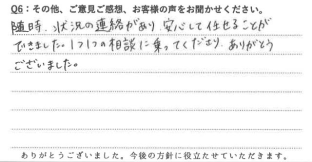 Q6：その他、ご意見ご感想、お客様の声をお聞かせください。
随時、状況の連絡があり 安心して任せることが
できました。1つ1つの相談に乗ってくださり、ありがとう
ございました。
ありがとうございました。今後の方針に役立たせていただきます。